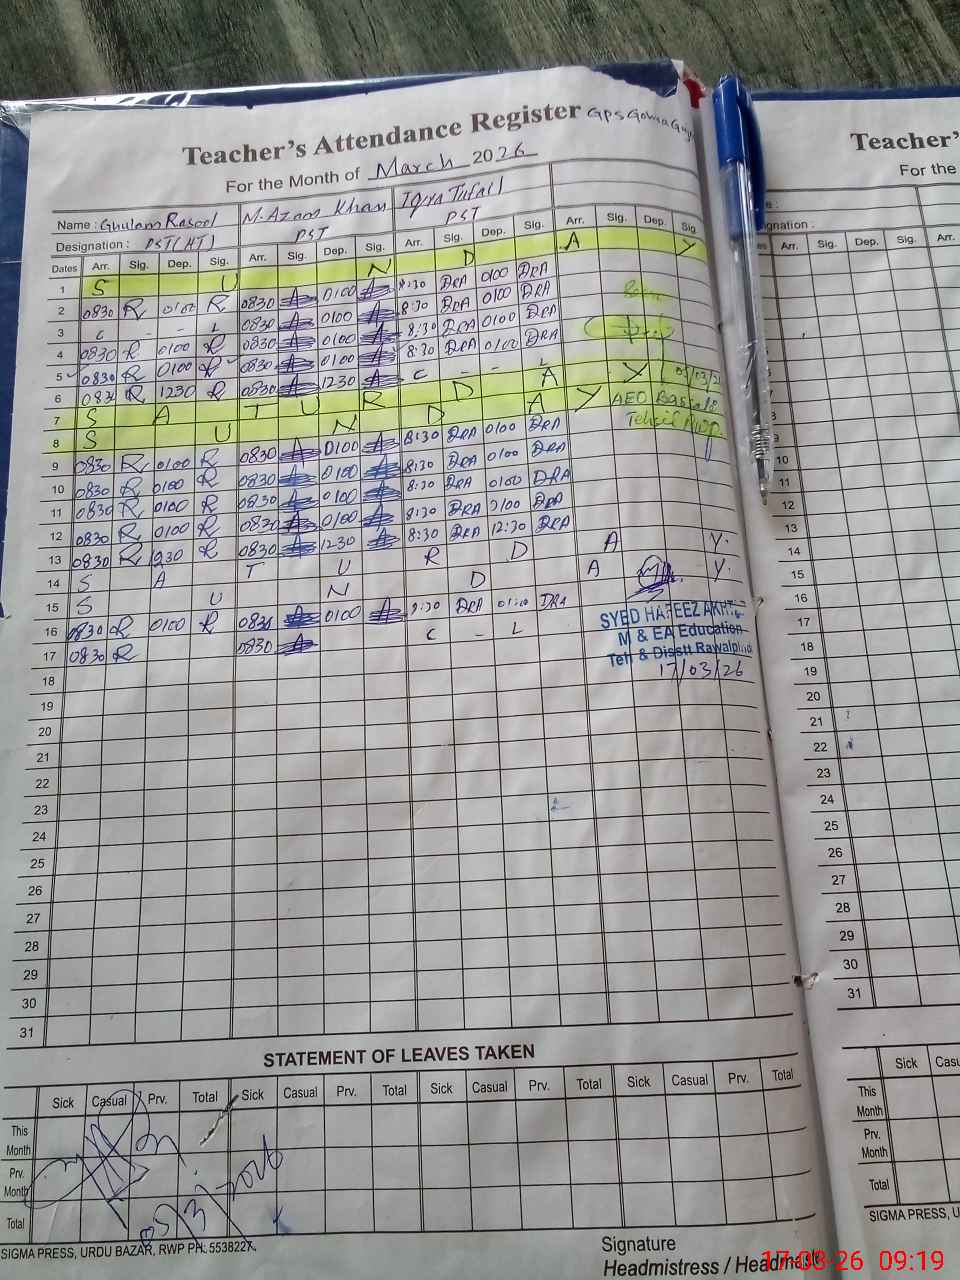 Teacher's Attendance Register GPS Gohra Gujj
For the Month of March 2026
Name : Ghulam Rasool M. Azam Khan Iqra Tufail
Designation : PST(HT) PST PST
Dates Arr. Sig. Dep. Sig. Arr. Sig. Dep. Sig. Arr. Sig. Dep. Sig. Arr. Sig. Dep. Sig.
1 S U N D A Y
2 0830 R 0100 R 0830 A 0100 A 8:30 DRA 0100 DRA
3 C - - L 0830 A 0100 A 8:30 DRA 0100 DRA
4 0830 R 0100 R 0830 A 0100 A 8:30 DRA 0100 DRA
5 0830 R 0100 R 0830 A 0100 A 8:30 DRA 0100 DRA
6 0830 R 1230 R 0830 A 1230 A C - - L
7 S A T U R D A Y
8 S U N D A Y
9 0830 R 0100 R 0830 A 0100 A 8:30 DRA 0100 DRA
10 0830 R 0100 R 0830 A 0100 A 8:30 DRA 0100 DRA
11 0830 R 0100 R 0830 A 0100 A 8:30 DRA 0100 DRA
12 0830 R 0100 R 0830 A 0100 A 8:30 DRA 0100 DRA
13 0830 R 1230 R 0830 A 1230 A 8:30 DRA 12:30 DRA
14 S A T U R D A Y.
15 S U N D A Y.
16 0830 R 0100 R 0830 A 0100 A 8:30 DRA 01:00 DRA
17 0830 R 0830 A C - L
18
19
20
21
22
23
24
25
26
27
28
29
30
31
05/03/26
AEO
Tehsil Rwp.
SYED HAFEEZ AKHT
M & EA Education
Teh & Disstt Rawalpindi
17/03/26
STATEMENT OF LEAVES TAKEN
Sick Casual Prv. Total Sick Casual Prv. Total Sick Casual Prv. Total Sick Casual Prv. Total
This Month
Prv. Month
Total
05/3/2026
SIGMA PRESS, URDU BAZAR, RWP PH: 5538227.
Signature
Headmistress / Headmaste
Teacher'
For the
Arr. Sig. Dep. Sig. Arr.
10
11
12
13
14
15
16
17
18
19
20
21
22
23
24
25
26
27
28
29
30
31
Sick Casu
This Month
Prv. Month
Total
SIGMA PRESS, U
17-03-26 09:19